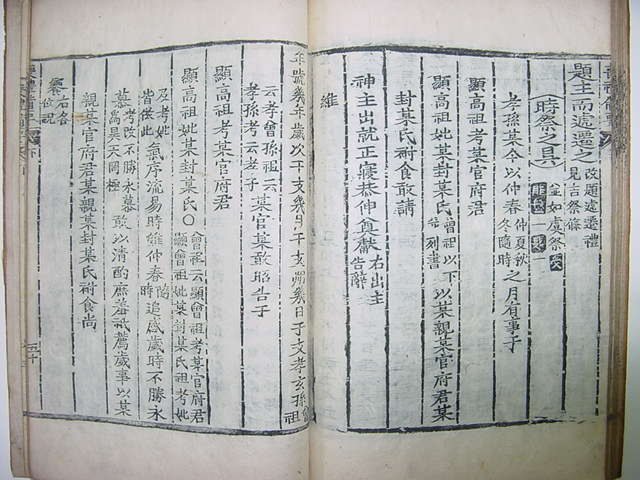 題主而遞遷之改題遞遷禮見吉祭條
時祭之具並如虞祭
孝孫某今以仲春仲夏秋冬隨時之月有事于
顯高祖考某官府君
顯高祖妣某封某氏曾祖以下列書以某親某官府君某
封某氏祔食敢請
神主出就正寢恭伸奠獻右出主告辭
維
年號幾年歲次干支幾月干支朔幾日干支孝玄孫
云孝曾孫祖云孝孫考云孝子某官某敢昭告于
顯高祖考某官府君
顯高祖妣某封某氏曾祖云顯曾祖考某官府君顯曾祖妣某封某氏祖考妣
及考妣皆倣此氣序流易時維仲春隨時追感歲時不勝永
慕考改不勝永慕爲昊天罔極敢以清酌庶羞祗薦歲事以某
親某官府君某親某封某氏祔食尚
饗右各位祝
五十